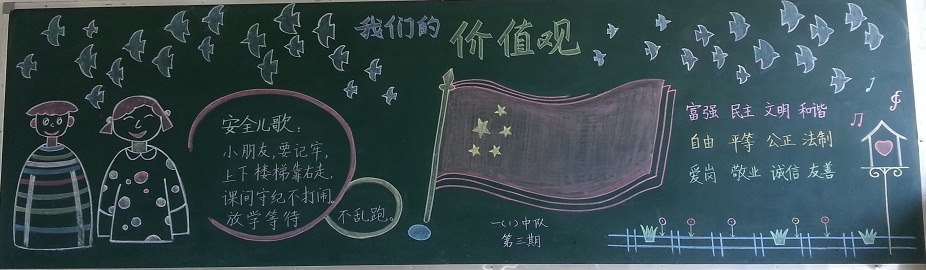 我们的
价值观
安全儿歌：
小朋友，要记牢，
上下楼梯靠右走，
课间守纪不打闹，
放学等待 不乱跑。
富强 民主 文明 和谐
自由 平等 公正 法制
爱岗 敬业 诚信 友善
一（1）中队
第三期